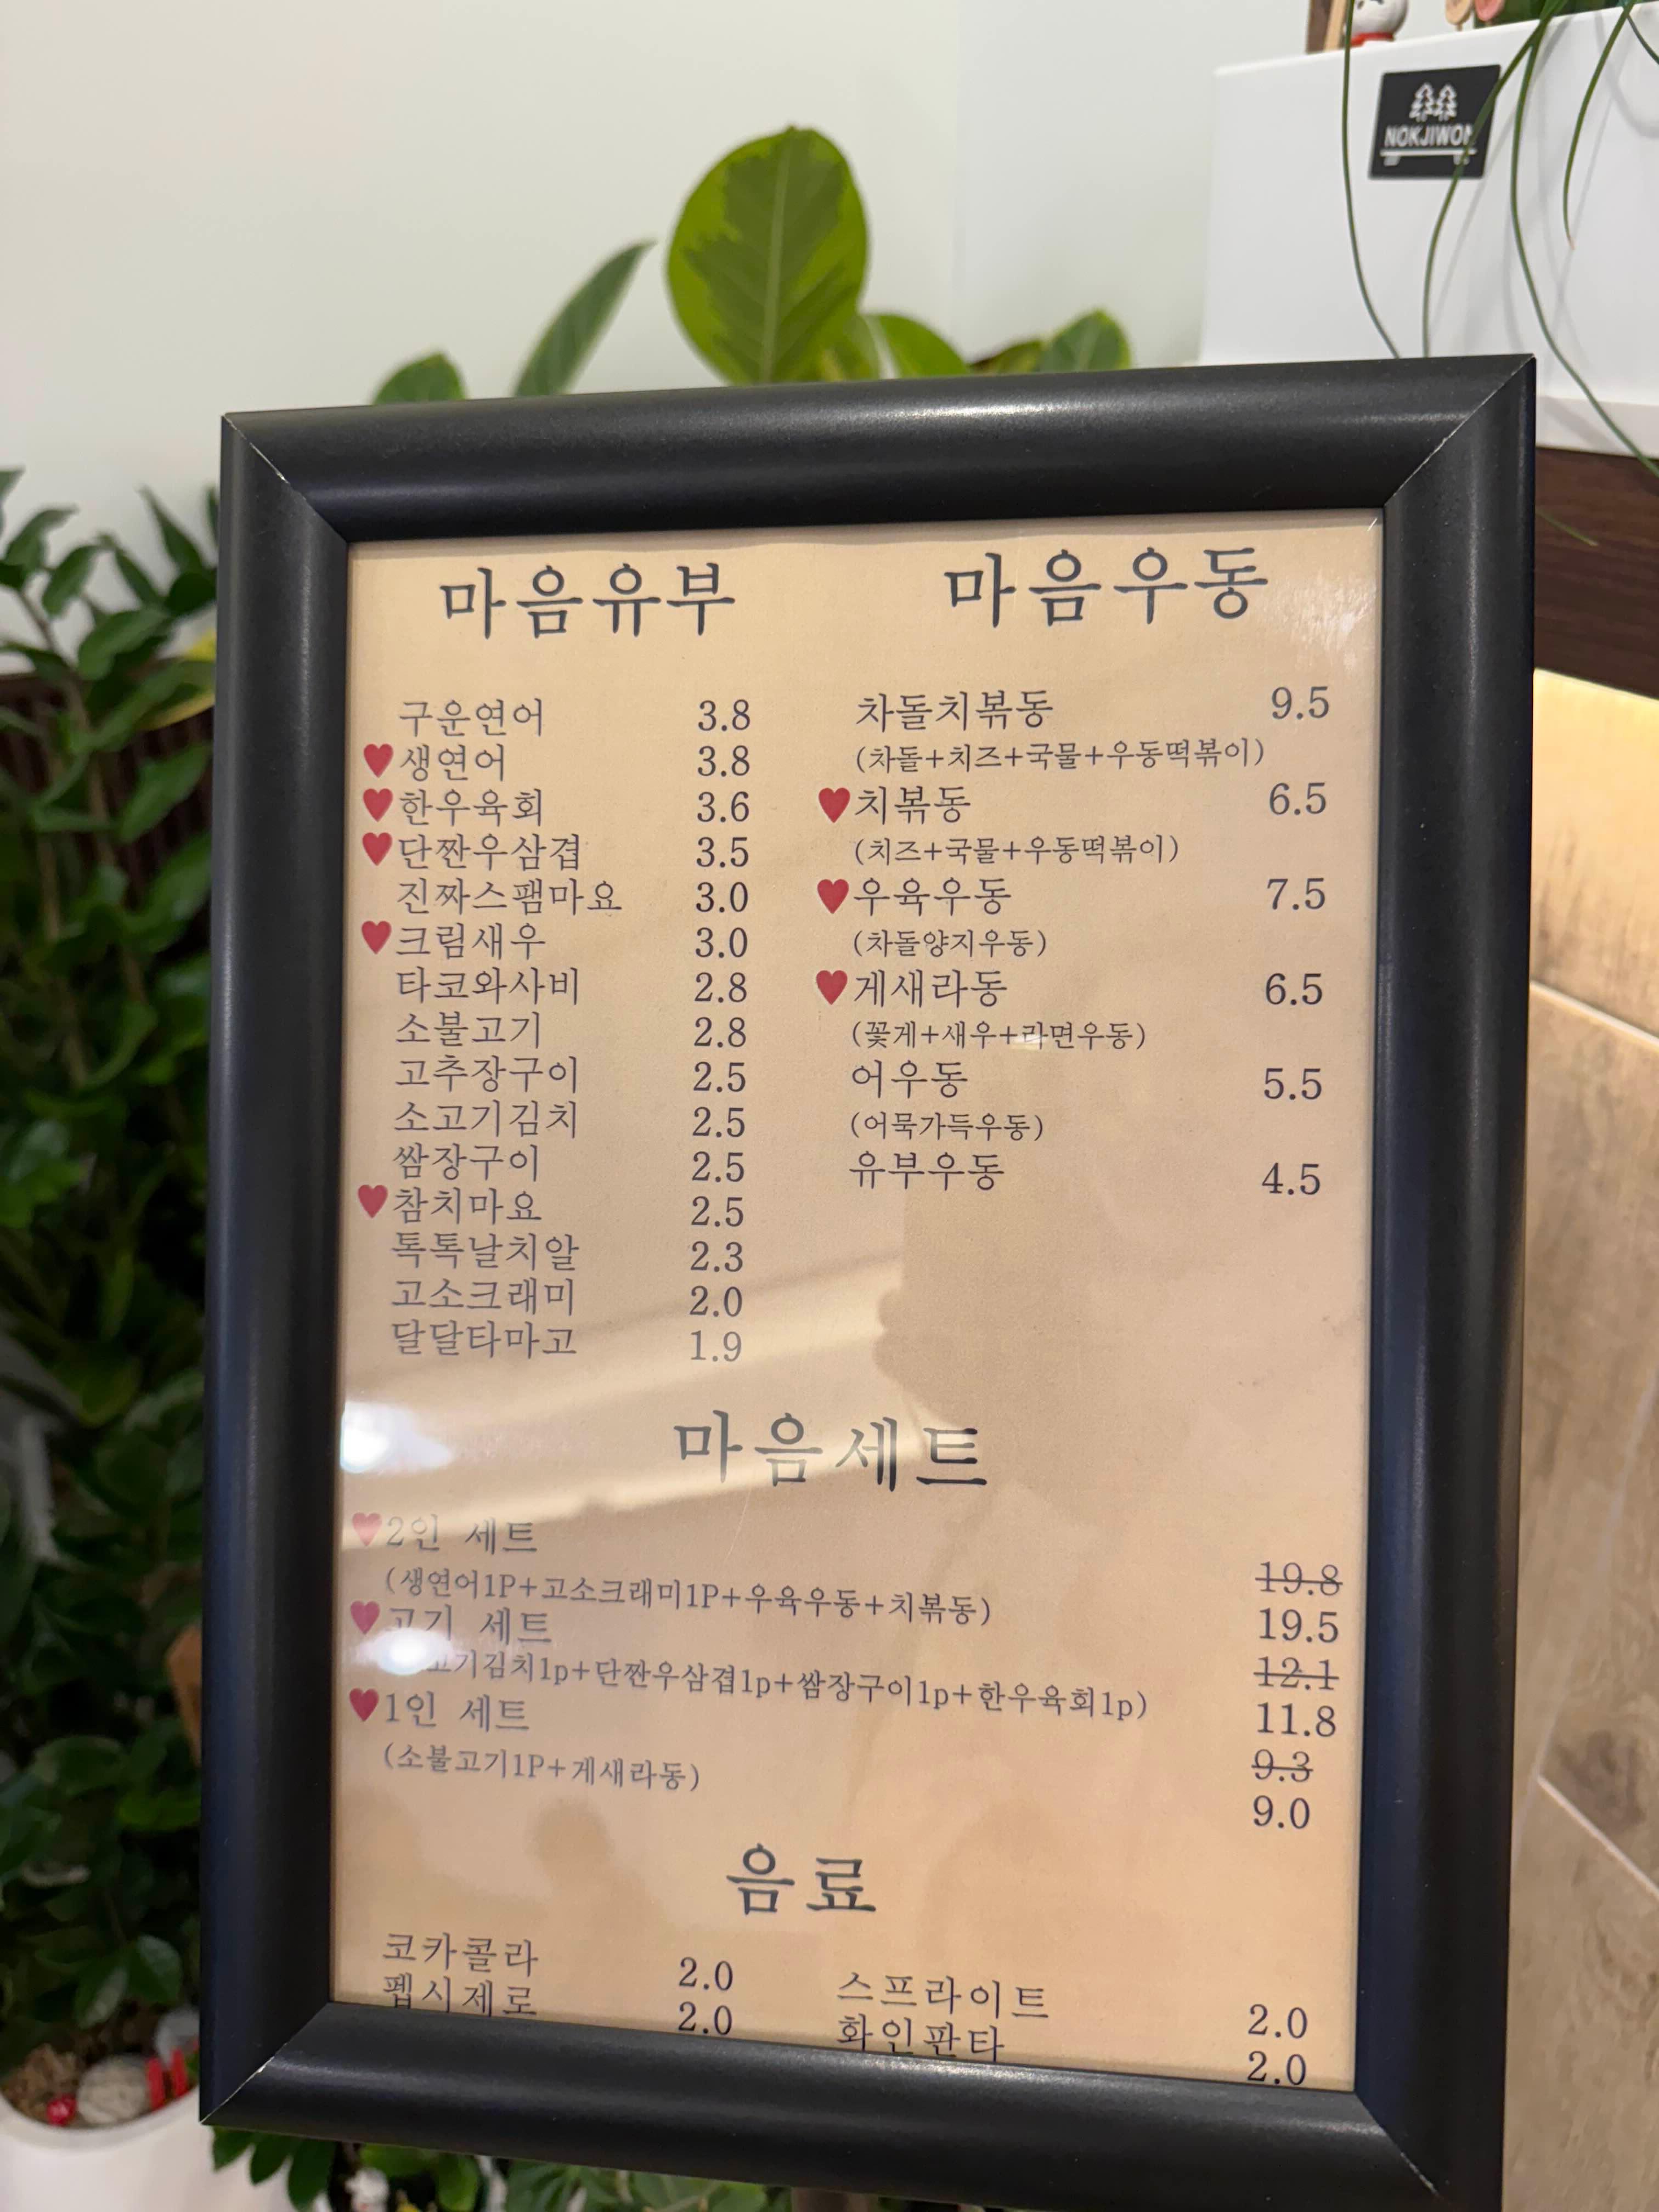 NOKJIWON
마음유부
구운연어 3.8
♥생연어 3.8
♥한우육회 3.6
♥단짠우삼겹 3.5
진짜스팸마요 3.0
♥크림새우 3.0
타코와사비 2.8
소불고기 2.8
고추장구이 2.5
소고기김치 2.5
쌈장구이 2.5
♥참치마요 2.5
톡톡날치알 2.3
고소크래미 2.0
달달타마고 1.9
마음우동
차돌치볶동 9.5
(차돌+치즈+국물+우동떡볶이)
♥치볶동 6.5
(치즈+국물+우동떡볶이)
♥우육우동 7.5
(차돌양지우동)
♥게새라동 6.5
(꽃게+새우+라면우동)
어우동 5.5
(어묵가득우동)
유부우동 4.5
마음세트
♥2인 세트
(생연어1P+고소크래미1P+우육우동+치볶동)
19.8
19.5
♥고기 세트
고기김치1p+단짠우삼겹1p+쌈장구이1p+한우육회1p)
12.1
11.8
♥1인 세트
(소불고기1P+게새라동)
9.3
9.0
음료
코카콜라 2.0
펩시제로 2.0
스프라이트 2.0
화인판타 2.0